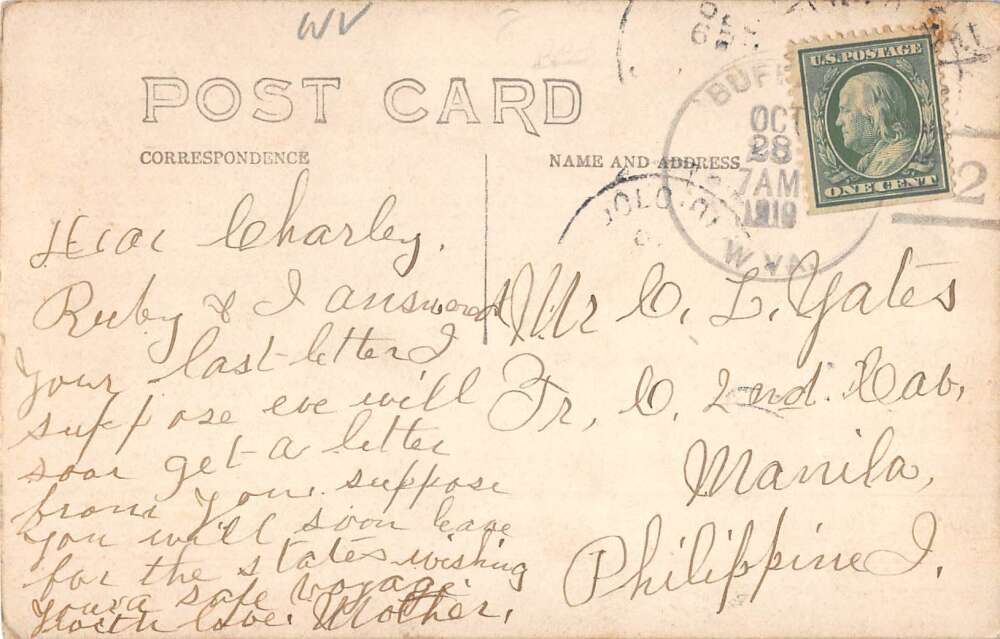 WV
POST CARD
CORRESPONDENCE
NAME AND ADDRESS
U.S. POSTAGE
ONE CENT
BUFF
OCT
28
7AM
1910
W.VA.
JOLO
2
Dear Charley,
Ruby & I answered
your last letter I
suppose we will
soon get a letter
from you. suppose
you will soon leave
for the states wishing
you a safe voyage.
With love. Mother.
Mr C. L. Yates
Tr, C. 2nd. Cav,
Manila,
Philippine I.